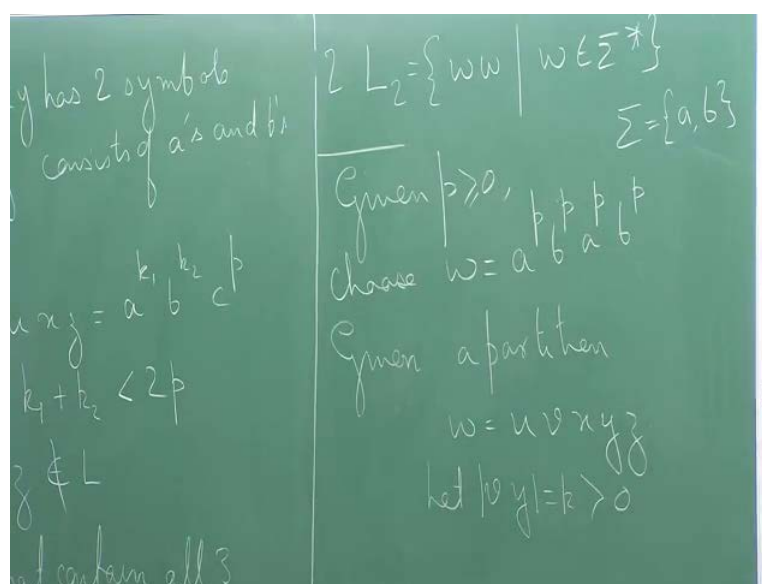 y has 2 symbols
consists of a's and b's
u x z = a^{k_1} b^{k_2} c^p
k_1 + k_2 < 2p
z ∉ L
not contain all 3
2 L_2 = {ww | w ∈ Σ*}
Σ = {a, b}
Given p ≥ 0,
choose w = a^p b^p a^p b^p
Given a partition
w = u v x y z
Let |v y| = k > 0